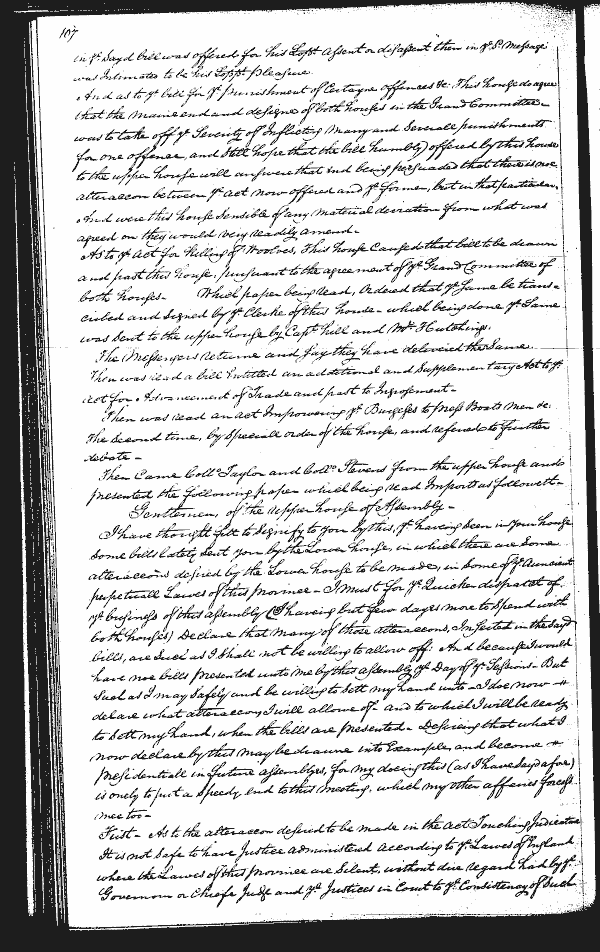 107
in yᵉ Sayd bill was offered for his Lopᵖˢ Assent or disassent them in yᵉ Sᵈ Message
was Intimated to be his Lopᵖˢ Pleasure.
And as to yᵉ bill for yᵉ punishment of Certayne offences &c. This house do agree
that the maine end and designe of both houses in the Grand Committee
was to take off yᵉ Severity of Inflicting Many and Severall punishments
for one offence, and Still hope that the bill humbly offered by this house
to the upper house will answere that End being perswaded that there is noe
alteracon between yᵉ act now offered and yᵉ former, but in that particular,
And were this house Sensible of any Material deviation from what was
agreed on they would very readily amend.
As to yᵉ Act for killing of Woolves, This house Caused that bill to be drawn
and past this house, pursuant to the agreement of yᵉ Grand Committee of
both houses. Which paper being Read, Ordered that yᵉ Same be trans=
cribed and Signed by yᵉ Clerke of this house - which being done yᵉ Same
was Sent to the upper house by Capᵗ hill and Mʳ Hutchings.
The Messengers returne and Say they have delivered the Same.
Then was read a bill Entitled an additional and Supplementary Act to yᵉ
act for Advancement of Trade and past to Ingrossment -
Then was read an act Impowering yᵉ Burgesses to Press Boats Men &c.
The Second time, by Speciall order of the house, and referred to further
debate -
Then Came Collᵒ Taylor and Collᵒ Stevens from the upper house and
presented the following paper which being read Imports as followeth -
Gentlemen, of the upper house of Assembly -
I have thought fitt to Signify to you by this, yᵗ having Seen in your house
Some bills lately Sent you by the Lower house, in which there are Some
alteracons desired by the Lower house to be made, in Some of yᵉ Auncient
perpetuall Lawes of this Province - I must for yᵉ Quicker dispatch of
yᵉ business of this assembly (I having but few dayes more to Spend with
both houses) Declare that Many of those alteracons, Inserted in the Sayd
bills, are Such as I Shall not be willing to allow off: And because I would
have noe bills presented unto me by this assembly yᵉ Day of yᵉ Sessions - But
Such as I may Safely and be willing to Sett my hand unto - I doe now
delare what alteracons I will allowe of - and to which I will be ready
to Sett my hand, when the bills are presented - Desireing that what I
now declare by this may be drawne into Example, and become
Presidentiall in future assemblyes, for my doeing this (as I have Sayd afore)
is onely to put a Speedy end to this meeting, which my other affaires forceth
mee too -
First - As to the alteracon desired to be made in the Act Touching Judicature
It is not Safe to have Justice administred according to yᵉ Lawes of England
where the Lawes of this Province are Silent, without due regard had by yᵉ
Governour or Chiefe Judge and yᵉ Justices in Court to yᵉ Consistency of Such